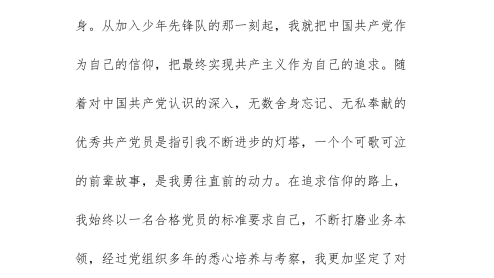 身。从加入少年先锋队的那一刻起，我就把中国共产党作
为自己的信仰，把最终实现共产主义作为自己的追求。随
着对中国共产党认识的深入，无数舍身忘记、无私奉献的
优秀共产党员是指引我不断进步的灯塔，一个个可歌可泣
的前辈故事，是我勇往直前的动力。在追求信仰的路上，
我始终以一名合格党员的标准要求自己，不断打磨业务本
领，经过党组织多年的悉心培养与考察，我更加坚定了对